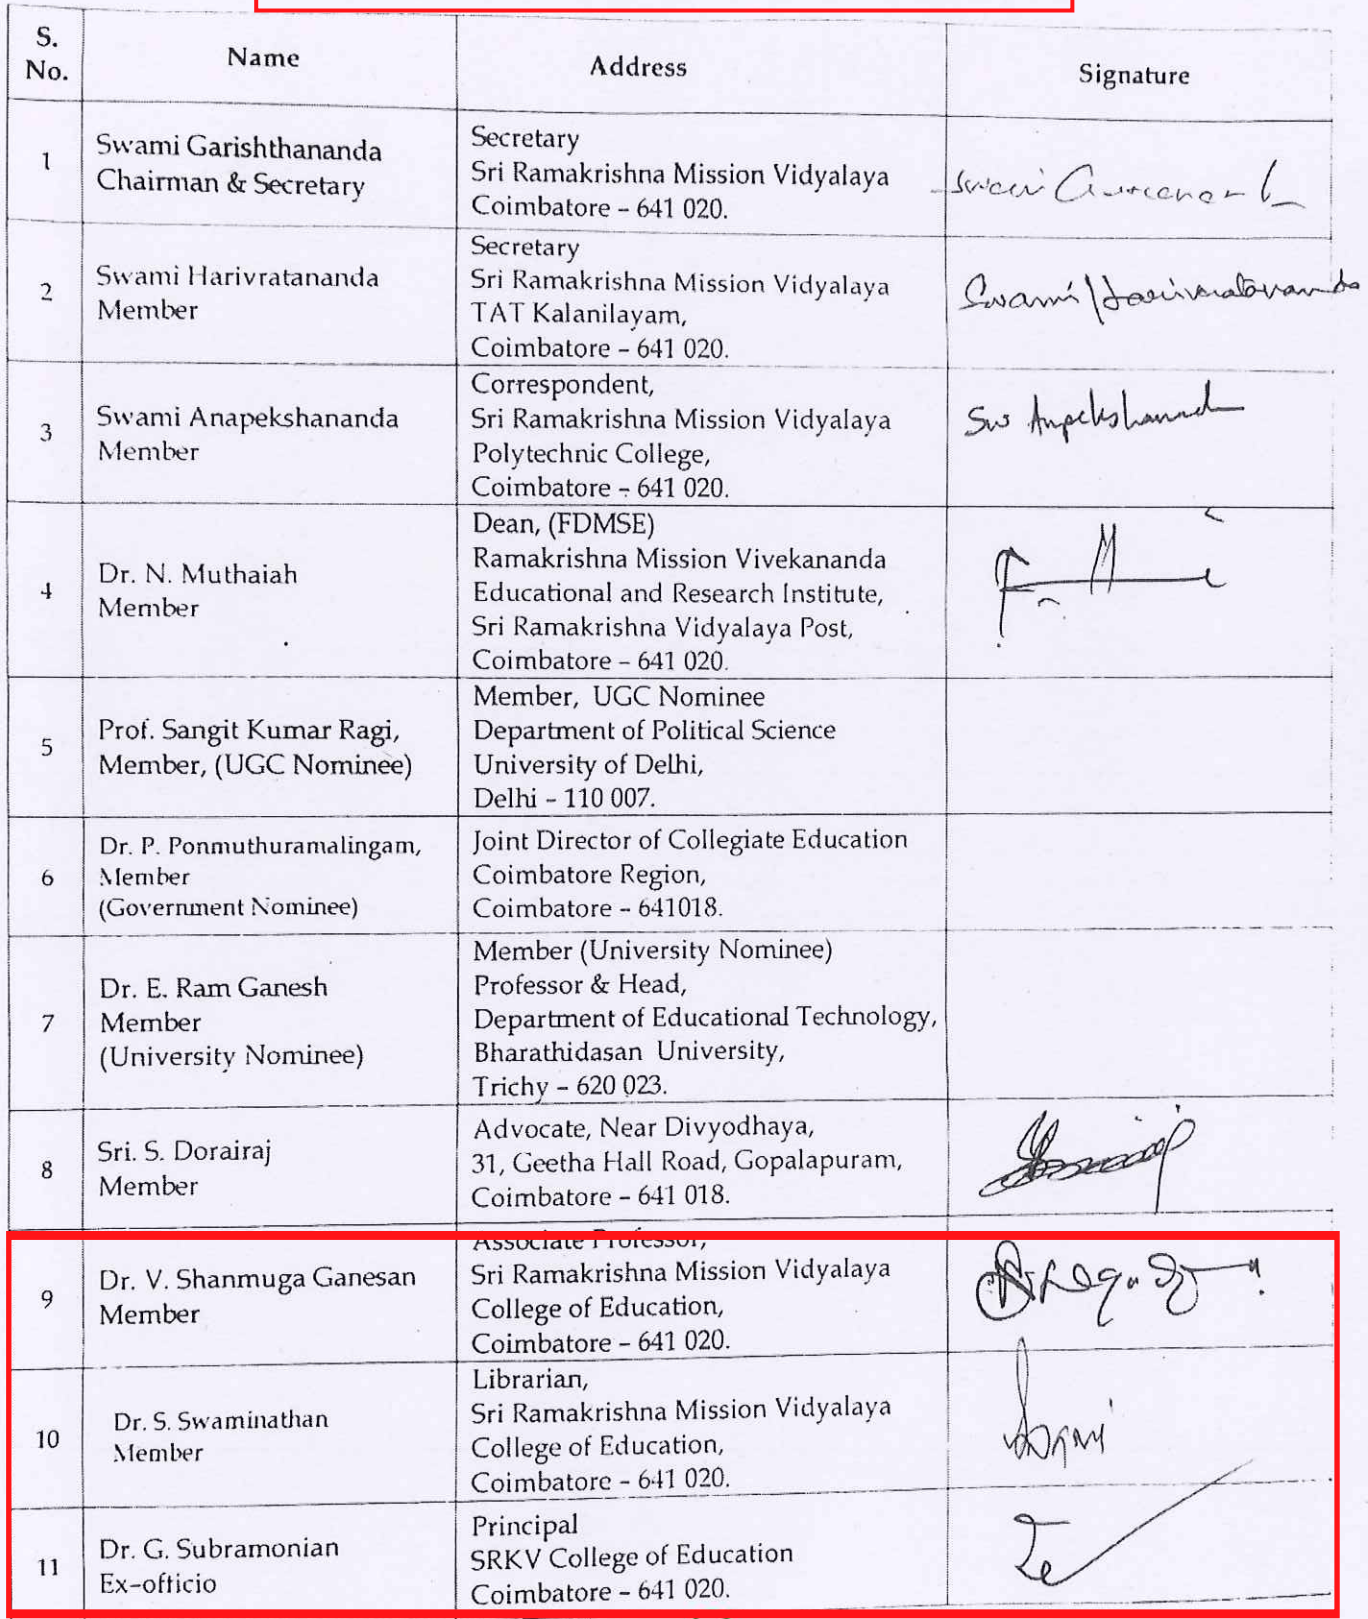 S. No. Name Address Signature
Swami Garishthananda
Chairman & Secretary
1
Secretary
Sri Ramakrishna Mission Vidyalaya
Coimbatore – 641 020.
2
Swami Harivratananda
Member
Secretary
Sri Ramakrishna Mission Vidyalaya
TAT Kalanilayam,
Coimbatore – 641 020.
Swami Harivratananda
3
Swami Anapekshananda
Member
Correspondent,
Sri Ramakrishna Mission Vidyalaya
Polytechnic College,
Coimbatore – 641 020.
4
Dr. N. Muthaiah
Member
Dean, (FDMSE)
Ramakrishna Mission Vivekananda
Educational and Research Institute,
Sri Ramakrishna Vidyalaya Post,
Coimbatore – 641 020.
5
Prof. Sangit Kumar Ragi,
Member, (UGC Nominee)
Member, UGC Nominee
Department of Political Science
University of Delhi,
Delhi – 110 007.
6
Dr. P. Ponmuthuramalingam,
Member
(Government Nominee)
Joint Director of Collegiate Education
Coimbatore Region,
Coimbatore – 641018.
7
Dr. E. Ram Ganesh
Member
(University Nominee)
Member (University Nominee)
Professor & Head,
Department of Educational Technology,
Bharathidasan University,
Trichy – 620 023.
8
Sri. S. Dorairaj
Member
Advocate, Near Divyodhaya,
31, Geetha Hall Road, Gopalapuram,
Coimbatore – 641 018.
9
Dr. V. Shanmuga Ganesan
Member
Associate Professor,
Sri Ramakrishna Mission Vidyalaya
College of Education,
Coimbatore – 641 020.
10
Dr. S. Swaminathan
Member
Librarian,
Sri Ramakrishna Mission Vidyalaya
College of Education,
Coimbatore – 641 020.
11
Dr. G. Subramonian
Ex-officio
Principal
SRKV College of Education
Coimbatore – 641 020.